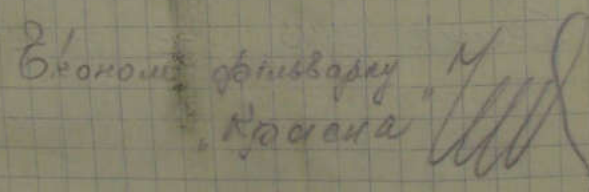 Економ фільварку
"Красна"